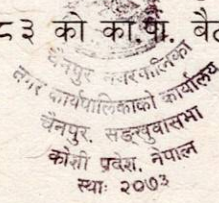 ८३ को का.पा. बै
चैनपुर नगरपालिका
नगर कार्यपालिकाको कार्यालय
चैनपुर, सङ्खुवासभा
कोशी प्रदेश, नेपाल
स्थाः २०७३